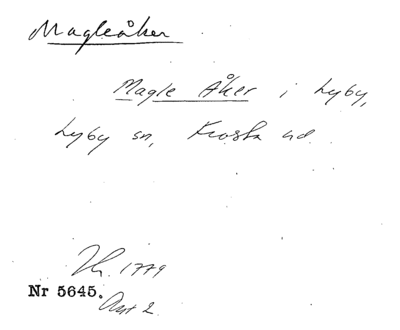 Magleåker
Magle Åker i Lyby,
Lyby sn, Frosta hd
1779
Nr 5645.
Akt 2